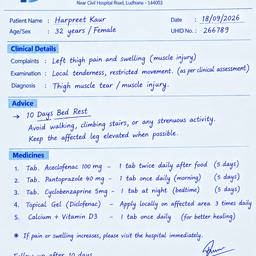 Near Civil Hospital Road, Ludhiana - 141003
Patient Name : Harpreet Kaur Date : 18/09/2026
Age/Sex : 32 years / Female UHID No. : 266789
Clinical Details
Complaints : Left thigh pain and swelling (muscle injury)
Examination : Local tenderness, restricted movement. (as per clinical assessment)
Diagnosis : Thigh muscle tear / muscle injury.
Advice
→ 10 Days Bed Rest
Avoid walking, climbing stairs, or any strenuous activity.
Keep the affected leg elevated when possible.
Medicines
1. Tab. Aceclofenac 100 mg - 1 tab twice daily after food (5 days)
2. Tab. Pantoprazole 40 mg - 1 tab once daily (morning) (5 days)
3. Tab. Cyclobenzaprine 5mg - 1 tab at night (bedtime) (5 days)
4. Topical Gel (Diclofenac) - Apply locally on affected area 3 times daily
5. Calcium + Vitamin D3 - 1 tab once daily (for better healing)
* If pain or swelling increases, please visit the hospital immediately.
Follow up after 10 days